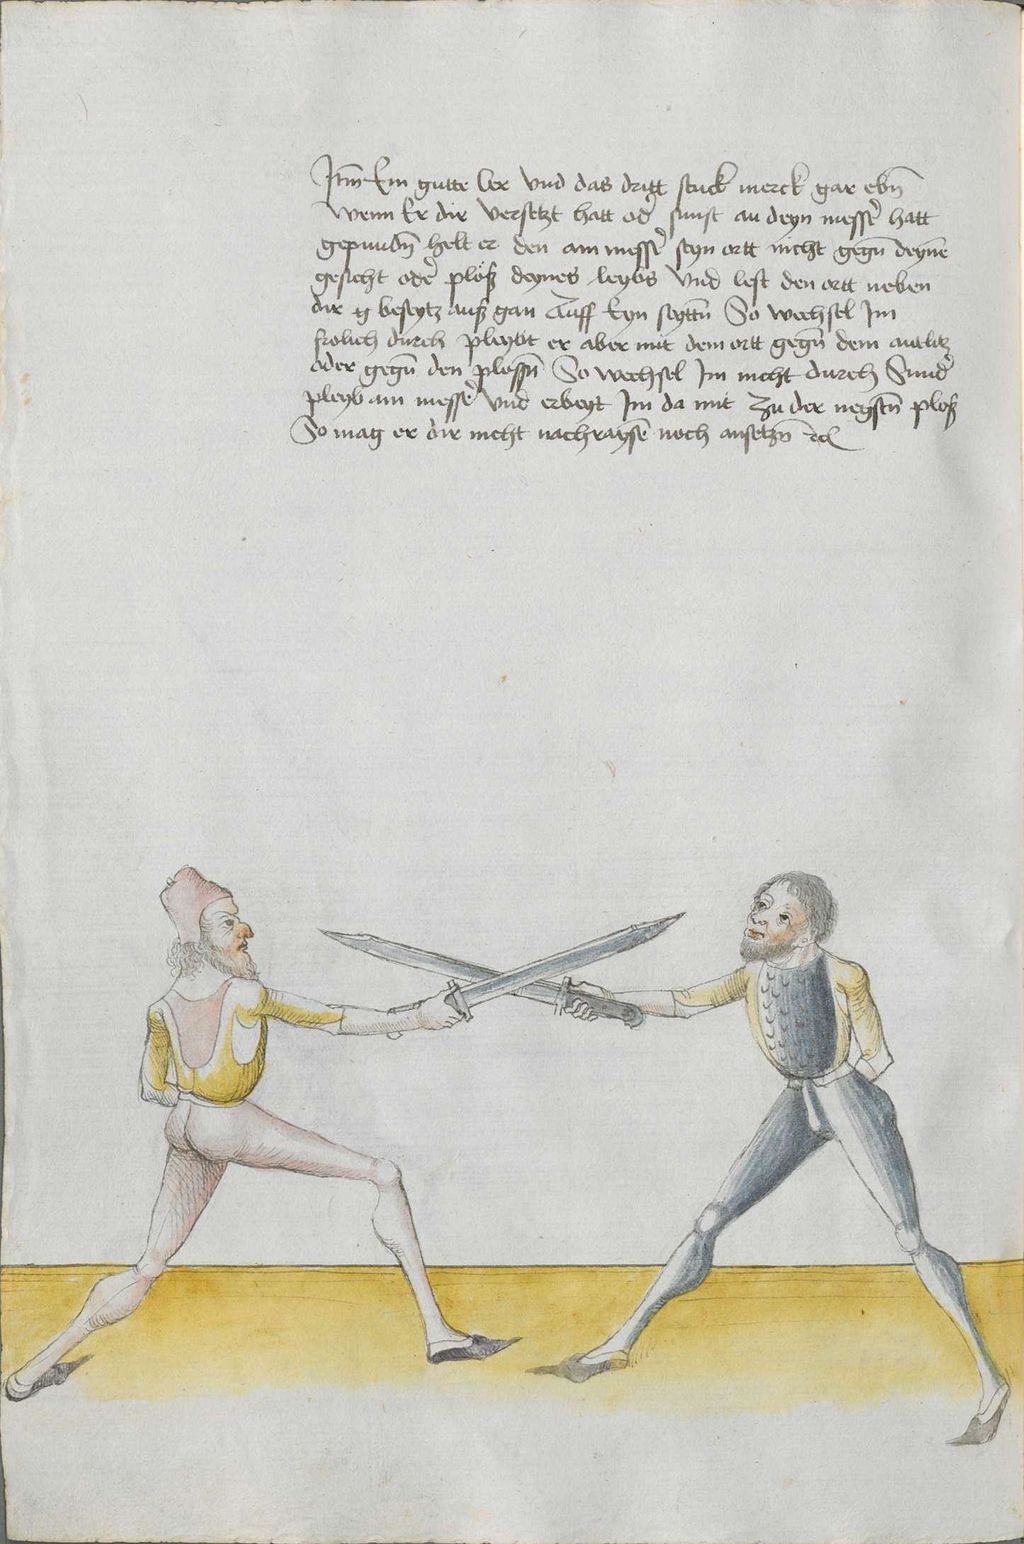 Itm Ein gutte ler vnd das dritt stuck merck gar ebn̄
Wenn Er dir versetzt hatt od' sunst an deyn messr̄ hatt
gepundn̄ helt er den am messr̄ seyn ortt nicht gegn̄ deyne
gesicht oder plöß deynes leybs vnd lest den ortt neben
dir beseytz auß gan Auff Eyn seyttn̄ So wechsel Im
frolich durch pleybt er aber mit dem ortt gegn̄ dem antlitz
oder gegn̄ den plössn̄ So wechsel Im nicht durch Sund'
pleyb am messe' vnd erbeyt Im da mit zu der negstn̄ plöß
So mag er dir nicht nachraysē noch ansetzn̄ ꝛcͭ